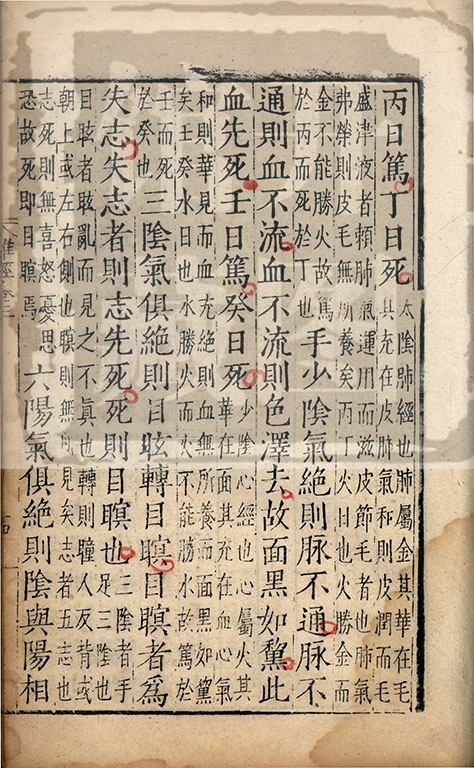 丙日篤丁日死太陰肺經也肺屬金其華在毛
其充在皮肺氣和則皮潤而毛
盛津液者賴肺氣運用而滋皮節毛者也肺氣
弗榮則皮毛無所養矣丙丁火日也火勝金而
金不能勝火故篤
於丙而死於丁也手少陰氣絕則脉不通脉不
通則血不流血不流則色澤去故面黑如黧此
血先死壬日篤癸日死少陰心經也心屬火其
華在面其充在血心氣
和則華見而血充絕則血無所養而面黑如黧
矣壬癸水日也水勝火而火不能勝水故篤於
壬而死
於癸也三陰氣俱絕則目眩轉目瞑目瞑者為
失志失志者則志先死死則目瞑也三陰者手
足三陰也
目眩者眩亂而見之不真也轉則瞳人反背或
朝上或左右側也瞑則無所見矣志者五志也
志死則無喜怒憂思
恐故死即目瞑焉六陽氣俱絕則陰與陽相
難經卷三